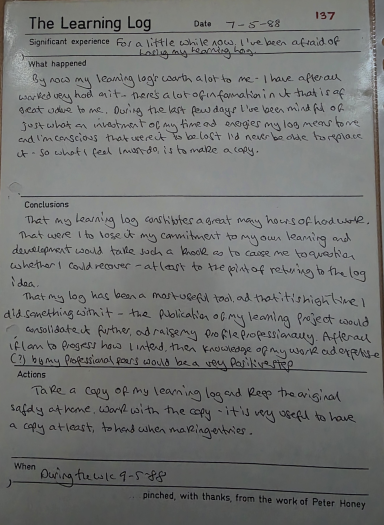 137
The Learning Log Date 7-5-88
Significant experience For a little while now, I've been afraid of
losing my learning log.
What happened
By now my learning log's worth a lot to me - I have after all
worked very hard on it - there's a lot of information in it that is of
great value to me. During the last few days I've been mindful of
just what an investment of my time and energies my log means to me
and I'm conscious that were it to be lost I'd never be able to replace
it - so what I feel I must do, is to make a copy.
Conclusions
That my learning log constitutes a great many hours of hard work.
That were I to lose it my commitment to my own learning and
development would take such a knock as to cause me to question
whether I could recover - at least to the point of returning to the log
idea.
That my log has been a most useful tool, and that it is high time I
did something with it - the publication of my learning project would
consolidate it further, and raise my profile professionally. After all
if I am to progress how I intend, then knowledge of my work and expertise
(?) by my professional peers would be a very positive step
Actions
Take a copy of my learning log and keep the original
safely at home. Work with the copy - it is very useful to have
a copy at least, to hand when making entries.
When During the w/c 9-5-88
pinched, with thanks, from the work of Peter Honey